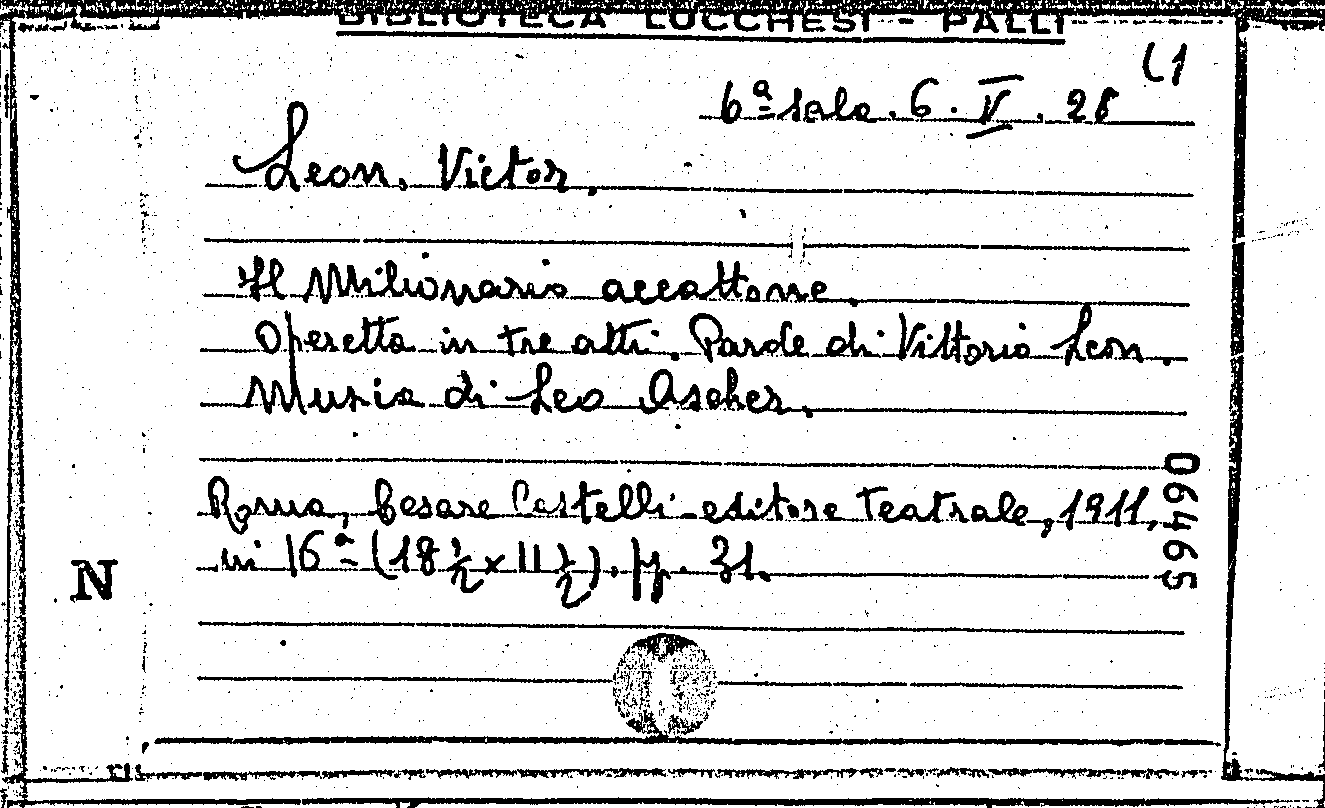 BIBLIOTECA LUCCHESI - PALLI
(1
6ª sala. 6. V. 28
Leon, Victor.
Il Milionario accattone.
Operetta in tre atti. Parole di Vittorio Leon.
Musica di Leo Ascher.
Roma, Cesare Castelli editore teatrale, 1911,
in 16º (18 ½ x 11 ½). pp. 31.
N
069465